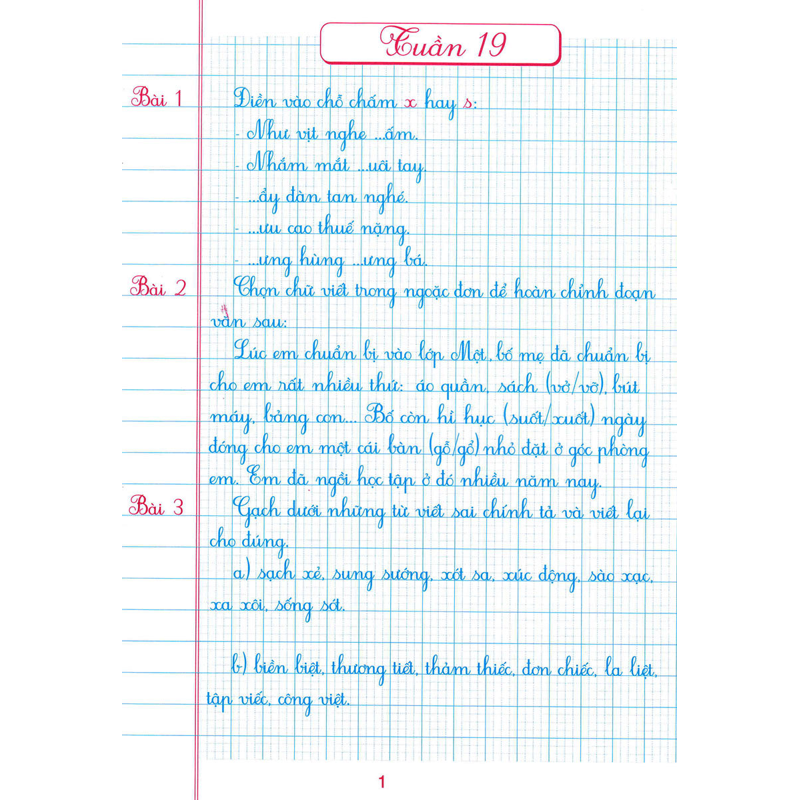 Tuần 19
Bài 1 Điền vào chỗ chấm x hay s:
- Như vịt nghe ...ấm.
- Nhắm mắt ...uôi tay.
- ...ẩy đàn tan nghé.
- ...ưu cao thuế nặng.
- ...ưng hùng ...ưng bá.
Bài 2 Chọn chữ viết trong ngoặc đơn để hoàn chỉnh đoạn
văn sau:
Lúc em chuẩn bị vào lớp Một, bố mẹ đã chuẩn bị
cho em rất nhiều thứ: áo quần, sách (vở/vỡ), bút
máy, bảng con... Bố còn hì hục (suốt/xuốt) ngày
đóng cho em một cái bàn (gỗ/gổ) nhỏ đặt ở góc phòng
em. Em đã ngồi học tập ở đó nhiều năm nay.
Bài 3 Gạch dưới những từ viết sai chính tả và viết lại
cho đúng.
a) sạch xẻ, sung sướng, xót sa, xúc động, sào xạc,
xa xôi, sống sót.
b) biền biệt, thương tiết, thảm thiếc, đơn chiếc, la liệt,
tập viếc, công việt.
1